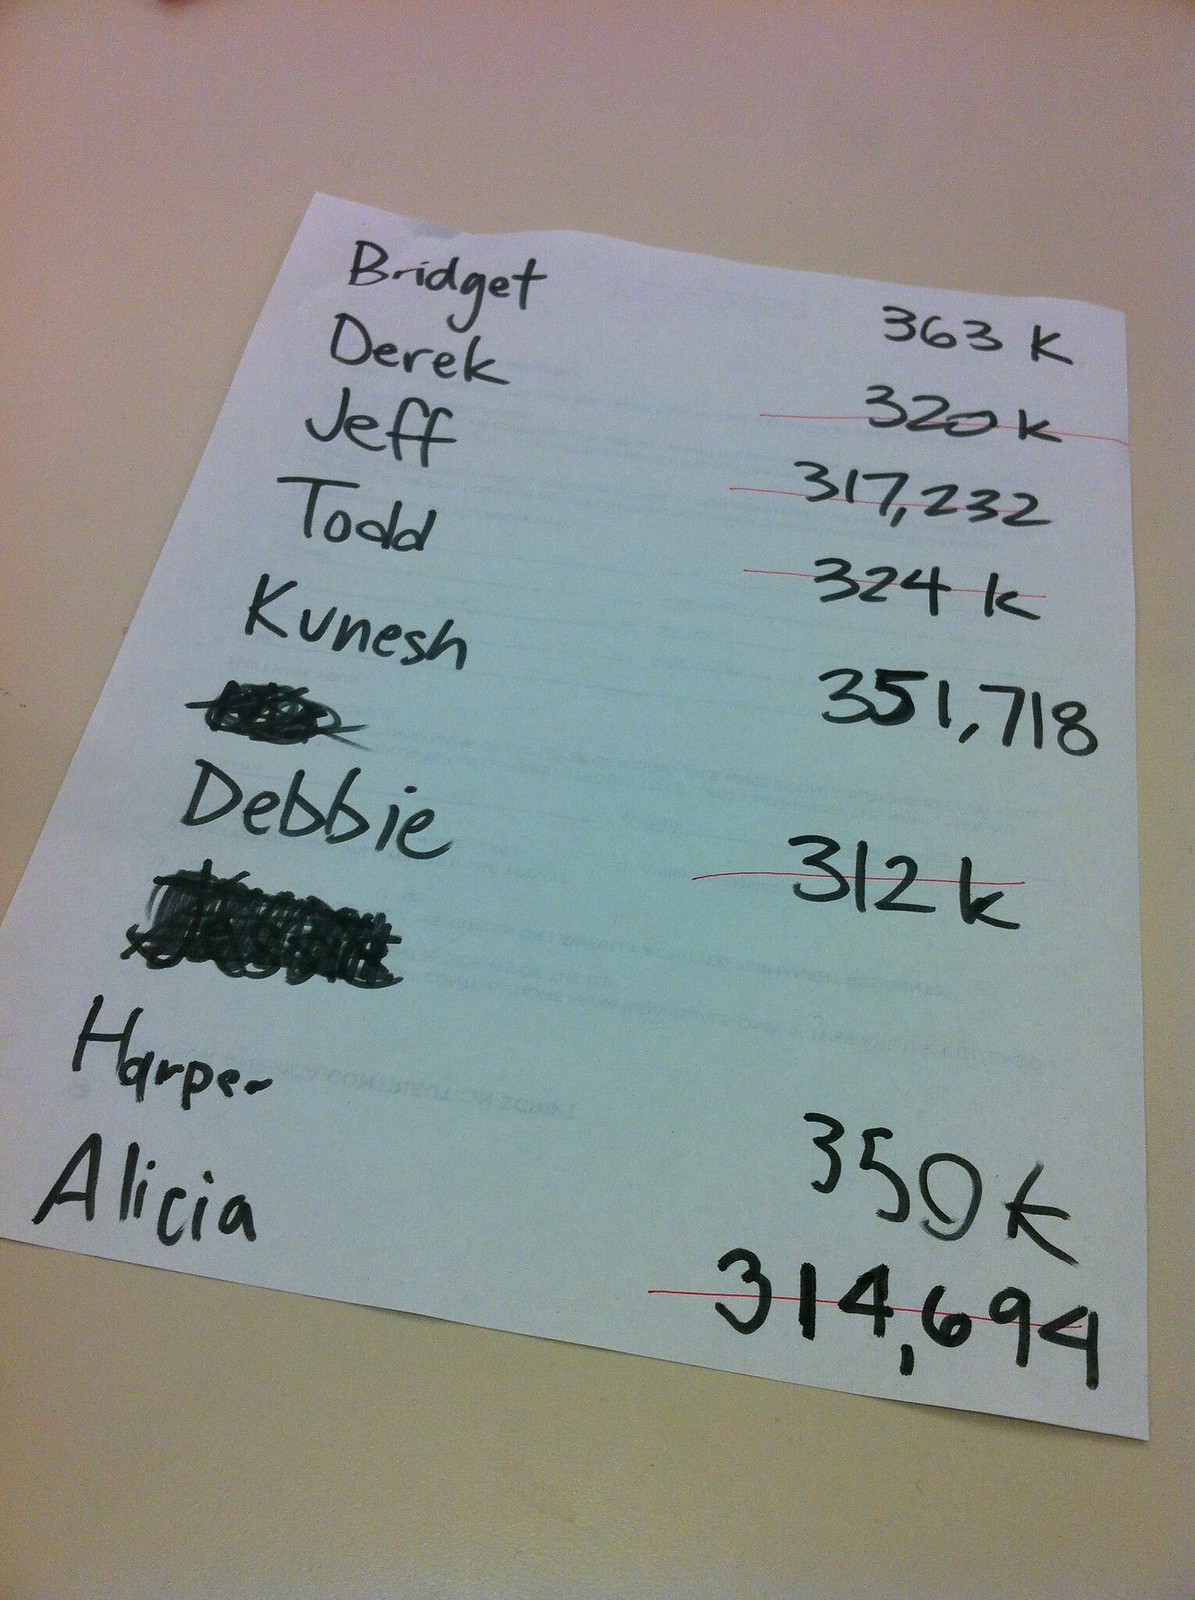 Bridget 363 K
Derek 320 k
Jeff 317,232
Todd 324 k
Kunesh 351,718
Debbie 312 k
Harper 350 k
Alicia 314,694